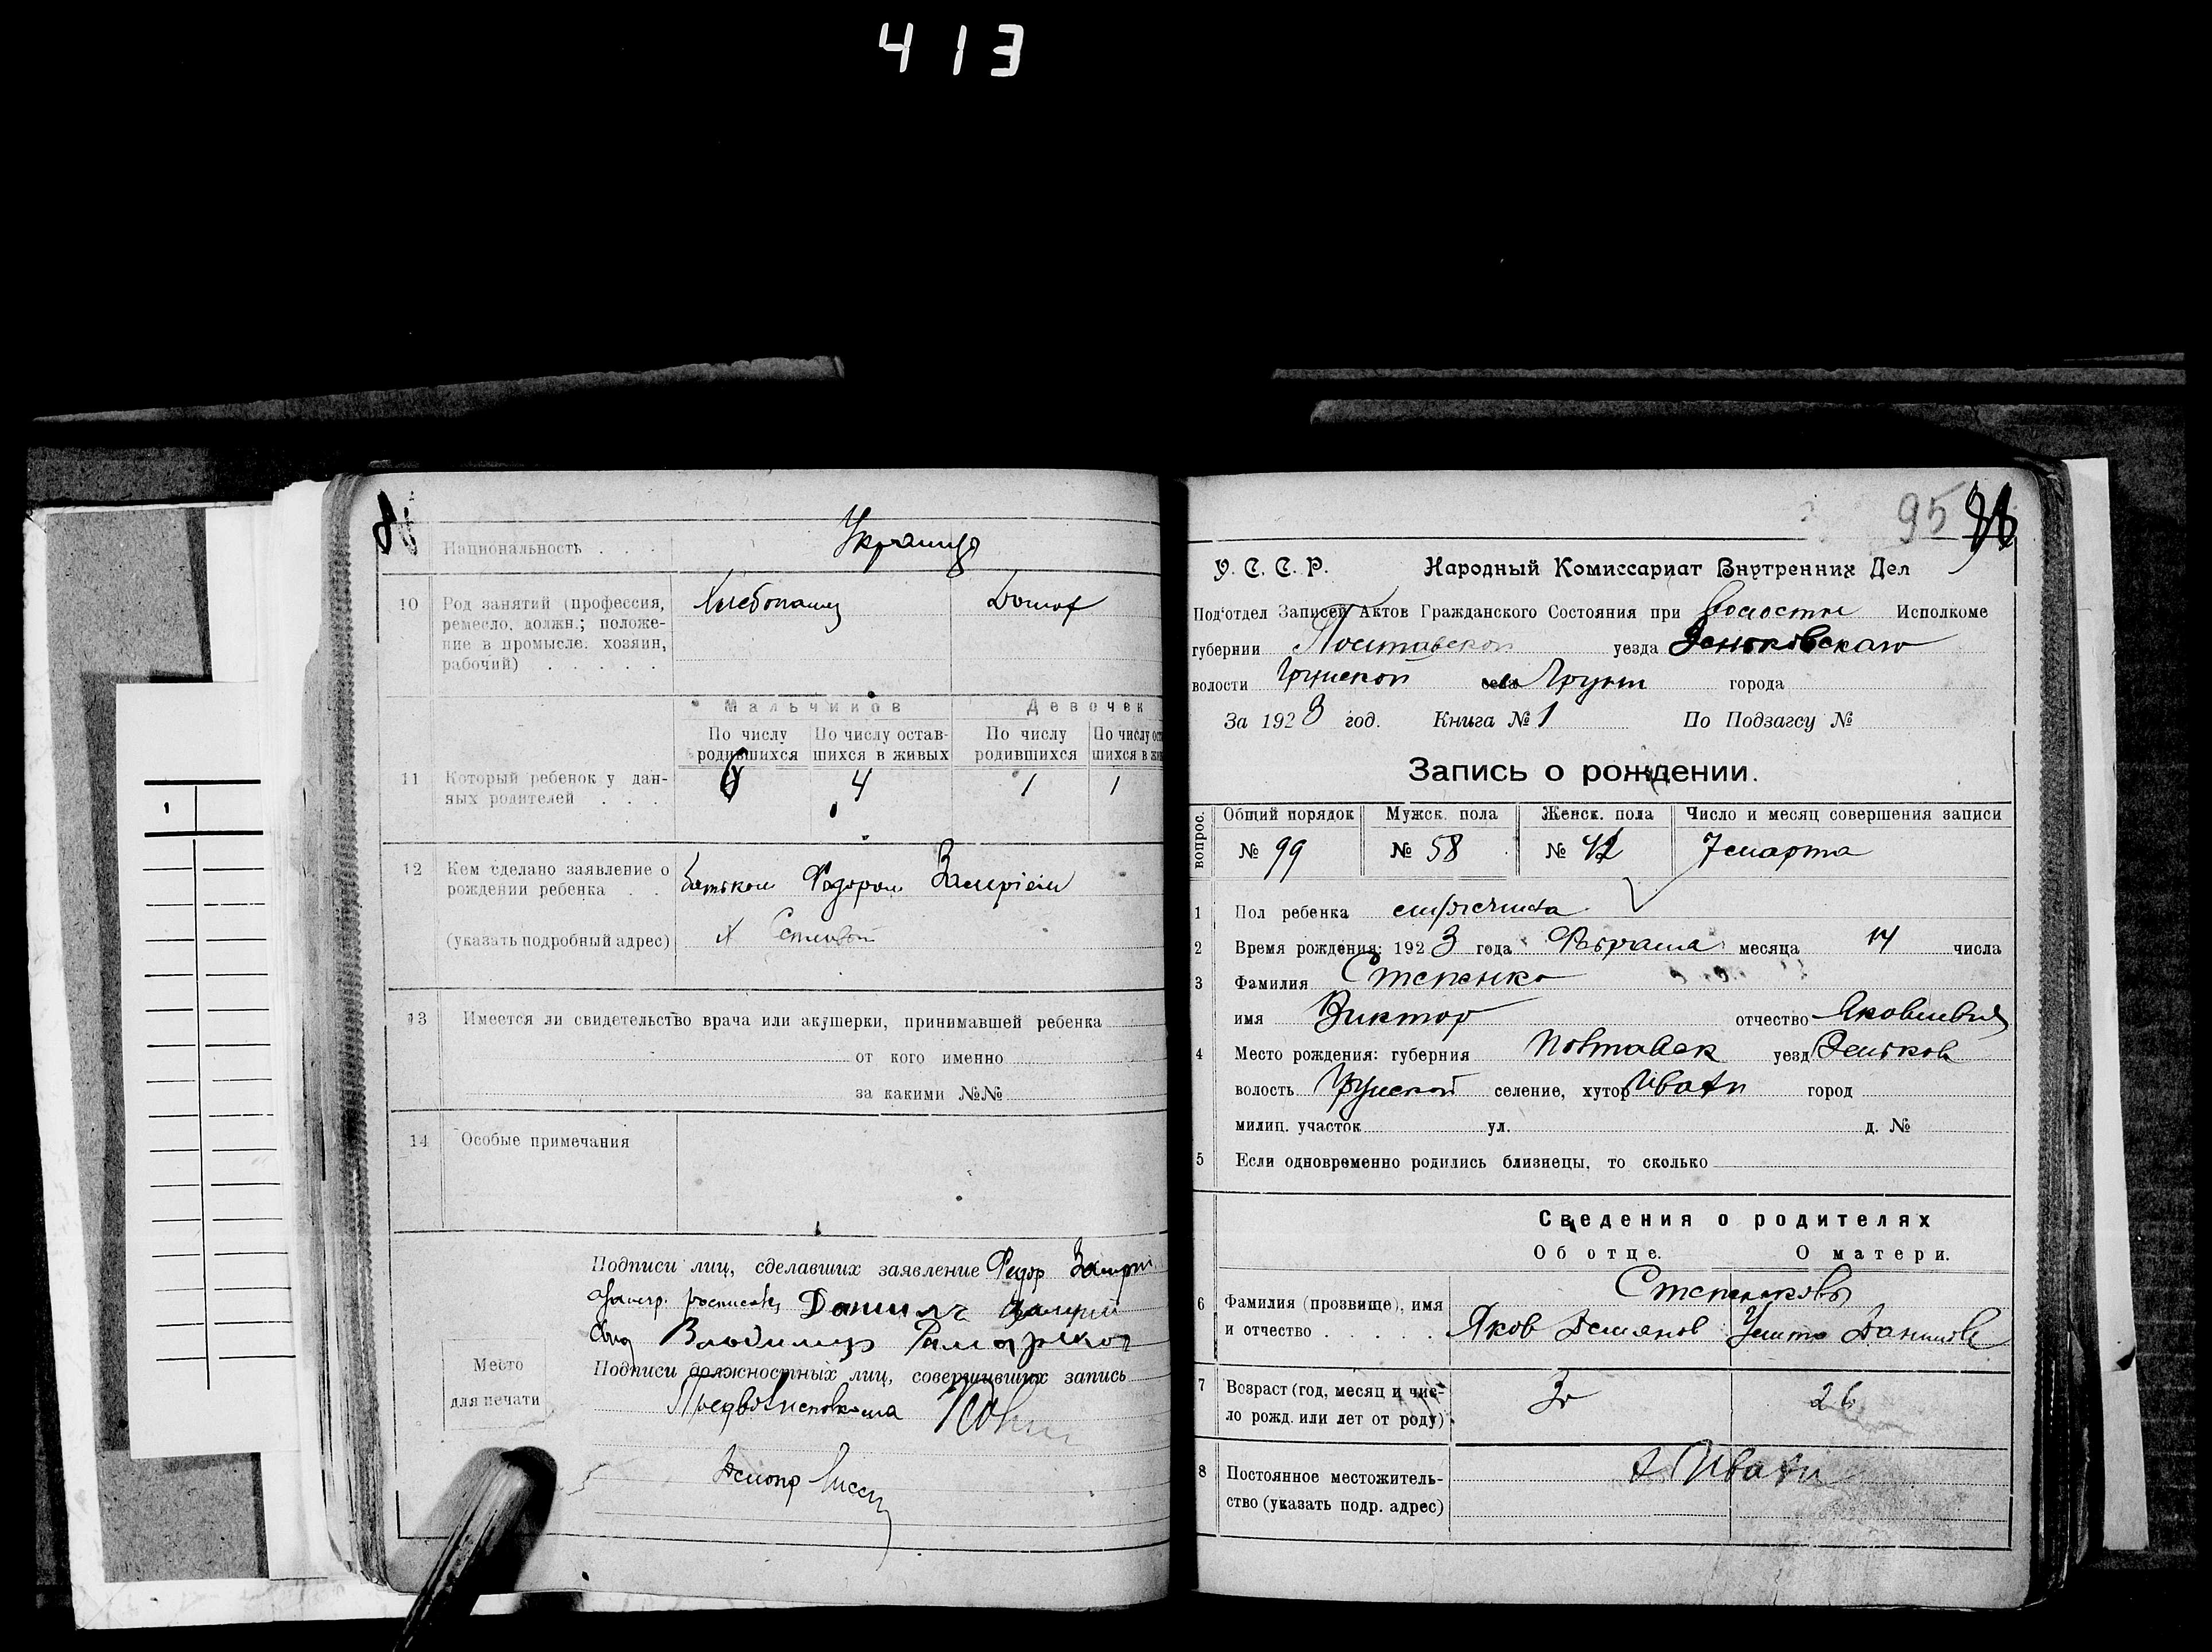 413
Национальность . . . Украинца
10 Род занятий (профессия, Хлебопашец Домох
ремесло, должн.; положе-
ние в промысле: хозяин,
рабочий) . . . . .
Мальчиков Девочек
По числу По числу остав- По числу По числу ост
родившихся шихся в живых родившихся шихся в жи
11 Который ребенок у дан- 4 1 1
ных родителей . . .
12 Кем сделано заявление о Батьком Федором
рождении ребенка . .
(указать подробный адрес) х
13 Имеется ли свидетельство врача или акушерки, принимавшей ребенка
от кого именно
за какими №№
14 Особые примечания
Подписи лиц, сделавших заявление Федор
Данилъ
Владимир
Место
для печати
Подписи должностных лиц, совершивших запись
95
У. С. С. Р. Народный Комиссариат Внутренних Дел
Под'отдел Записей Актов Гражданского Состояния при Волостн Исполкоме
губернии Полтавской уезда Зеньковскаго
волости Грунской села Грунь города
За 1923 год. Книга № 1 По Подзагсу №
Запись о рождении.
вопрос. Общий порядок Мужск. пола Женск. пола Число и месяц совершения записи
№ 99 № 58 № 42 7 марта
1 Пол ребенка
2 Время рождения: 1923 года Февраля месяца 14 числа
3 Фамилия Степенко
имя Виктор отчество Яковлевич
4 Место рождения: губерния Полтавск уезд Зеньков
волость Грунской селение, хутор город
милиц. участок ул. д. №
5 Если одновременно родились близнецы, то сколько
Сведения о родителях
Об отце. О матери.
6 Фамилия (прозвище), имя
и отчество . . . . . Яков Демянов
7 Возраст (год, месяц и чис- 26
ло рожд. или лет от роду)
8 Постоянное местожитель- х
ство (указать подр. адрес)